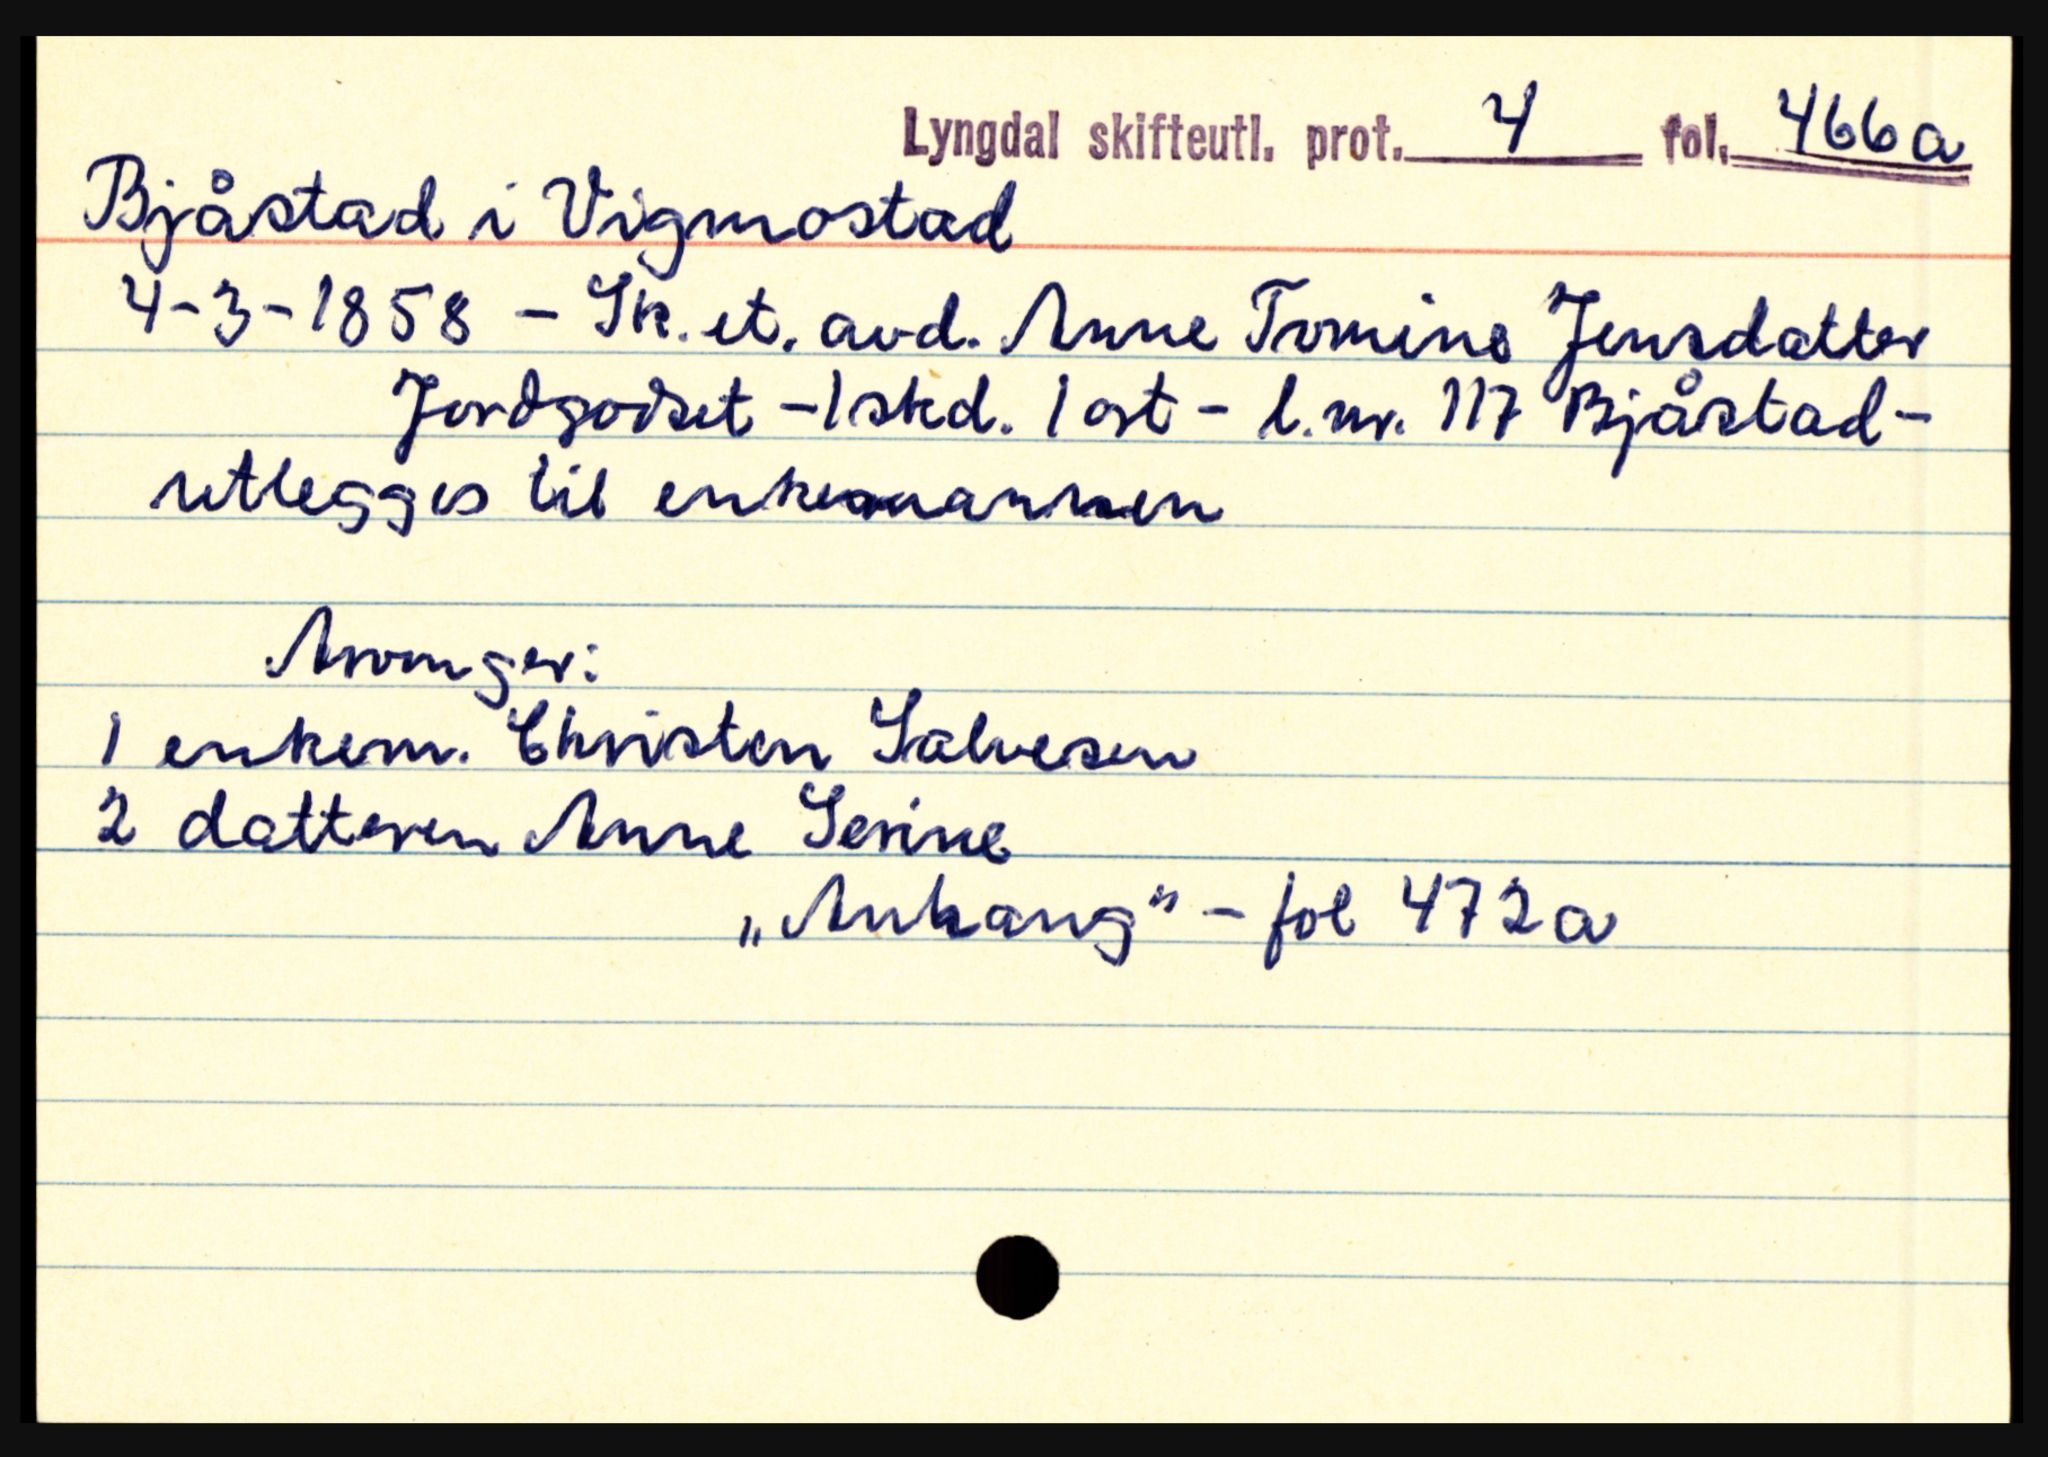 Lyngdal skifteutl. prot. 4 fol. 466a
Bjåstad i Vigmostad
4-3-1858 - Sk. et. avd. Anne Tomine Jensdatter
Jordgodset - 1 skd. 1 ort - l.nr. 117 Bjåstad -
utlegges til enkemannen
Arvinger:
1 enkem. Christen Salvesen
2 datteren Anne Serine
„Anhang" - fol 472a